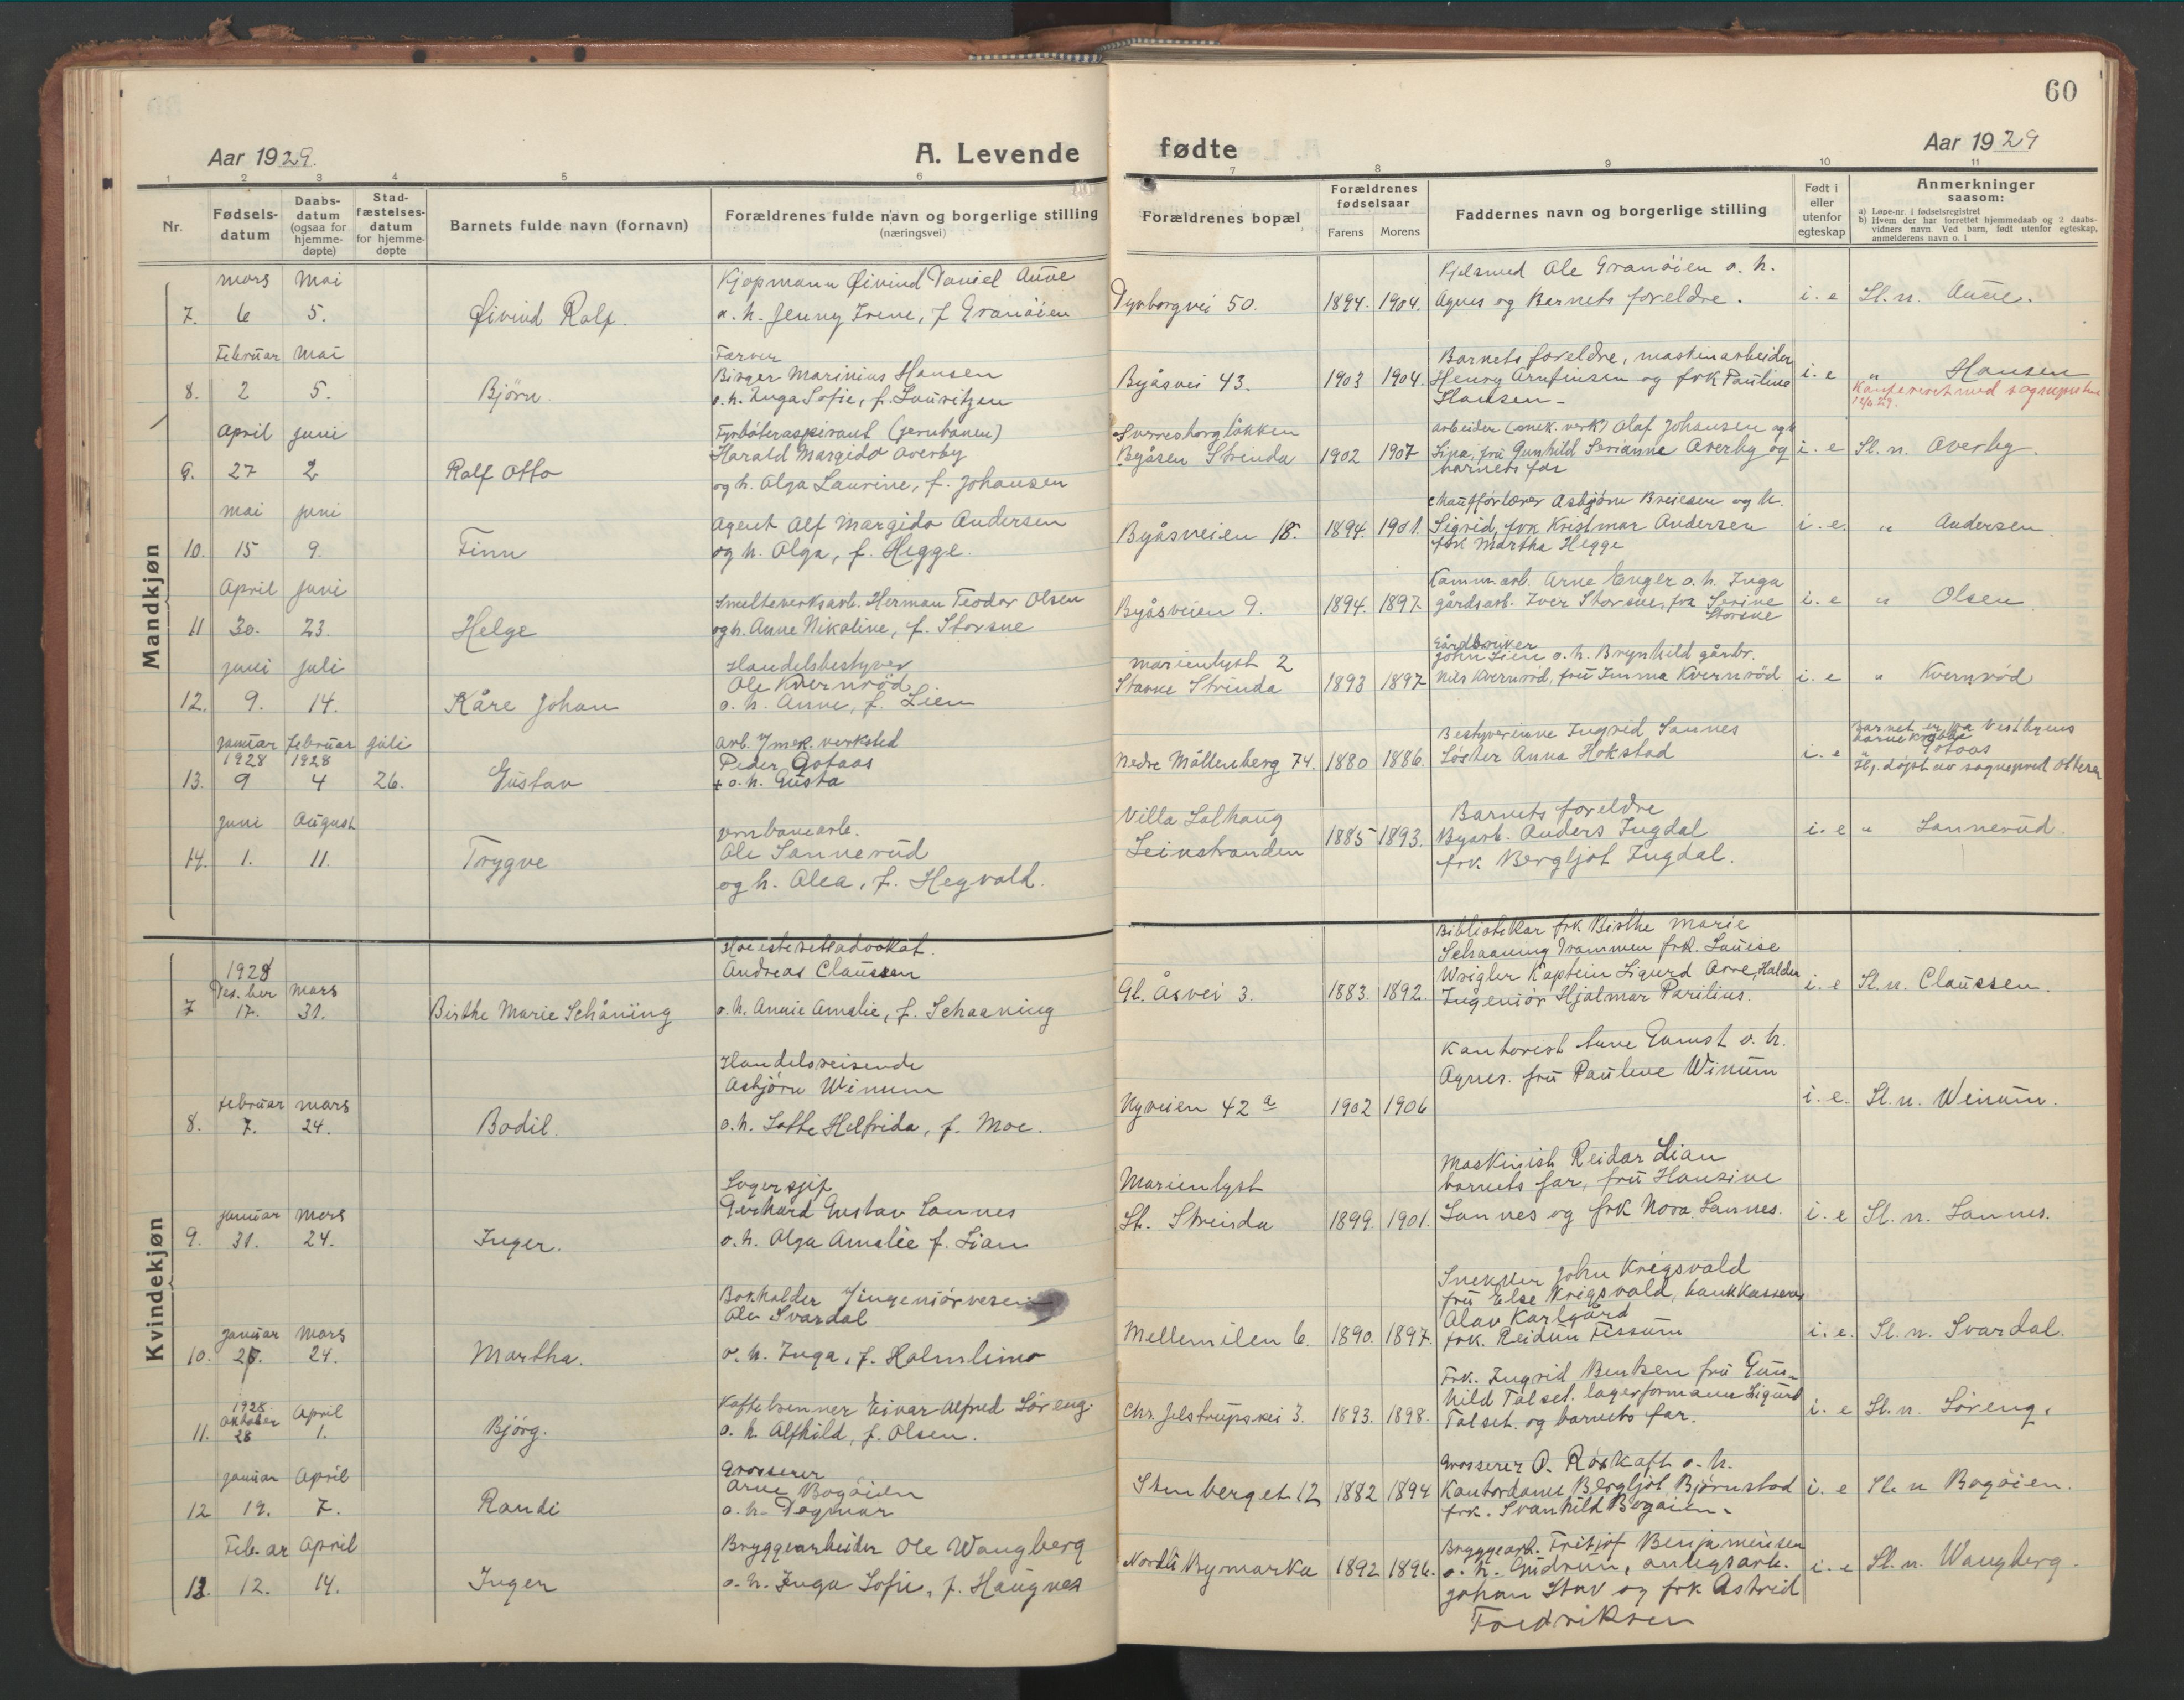 60
Aar 1929.
A. Levende
fødte
Aar 1929
1 2 3 4 5 6 7 8 9 10 11
Nr.
Fødsels-
datum
Daabs-
datum
(ogsaa for
hjemme-
døpte)
Stad-
fæstelses-
datum
for hjemme-
døpte
Barnets fulde navn (fornavn)
Forældrenes fulde navn og borgerlige stilling
(næringsvei)
Forældrenes bopæl
Forældrenes
fødselsaar
Farens Morens
Faddernes navn og borgerlige stilling
Født i
eller
utenfor
egteskap
Anmerkninger
saasom:
a) Løpe-nr. i fødselsregistret
b) Hvem der har forrettet hjemmedaab og 2 daabs-
vidners navn. Ved barn, født utenfor egteskap,
anmelderens navn o. l
Mandkjøn
mars mai
7. 6 5.
Øivind Rolf.
Kjøpmann Øivind Daniel Aune
o. h. Jenny Irene, f Granøien
Dyrborgvei 50.
1894. 1904.
Kjelsmed Ole Granøien o. h.
Agnes og Barnets foreldre.
i. e
Sl. n. Aune.
Februar mai
8. 2 5.
Bjørn.
Farver
Birger Marinius Hansen
o. h. Inga Sofie, f. Lauritzen
Byåsvei 43.
1903 1904.
Barnets foreldre, maskinarbeider
Henry Arnfinsen og frk Pauline
Hansen
i. e
" Hansen
April juni
9. 27 2
Rolf Otto
Fyrbøteraspirant (jernbanen)
Harald Margido Averby
og h. Olga Laurine, f. Johansen
Sverresborgløkken
Byåsen Strinda
1902 1907
arbeider (mek. verk) Olaf Johansen og h
fru Gunhild Serianne Averby og
barnets far
i. e
Sl. n. Averby.
mai juni
10. 15 9.
Finn
Agent Alf Margido Andersen
og h. Olga, f. Hegge.
Byåsveien 18.
1894. 1901.
Asbjørn Breiesen og h.
Sigrid, frk Kristmar Andersen
frk Martha Hegge
i. e.
" Andersen
April juni
11 30. 23.
Helge
Smelteverksarb. Herman Teodor Olsen
og h. Anne Nikoline, f. Storsve
Byåsveien 9.
1894. 1897.
Komm. arb. Arne Enger o. h. Inga
gårdsarb. Iver Storsve, frk Serine
Storsve
i. e
" Olsen
juni juli
12. 9. 14.
Kåre Johan
Handelsbestyrer
Ole Kvernrød
o. h. Anne, f. Lien
Marienlyst 2
Stavne Strinda
1893 1897
Gårdbruker
John Lien o. h. Brynhild gårbr.
Nils Kvernrød, fru Imma Kvernrød
i. e
" Kvernrød
januar februar juli
1928 1928
13. 9 4 26.
Gustav
arb. / mek. verksted
Peder Gotaas
+ o. h. Gusta
Nedre Møllenberg 74.
1880 1886.
Bestyrerinne Ingrid Sannes
Søster Anna Hokstad
i. e
Barnet er fra Vestbyens
barnekrybbe
" Gotaas
Hj. døpt av sogneprest Oltera
juni August
14. 1. 11.
Trygve
jernbanearb.
Ole Sannerud
og h. Olea, f. Hegvold.
Villa Solhaug
Leinstranden
1885 1893.
Barnets foreldre
Byarb. Anders Ingdal
frk. Bergljot Ingdal.
i. e
" Sannerud.
Kvindekjøn
1928
Des. ber mars
7 17. 31.
Birthe Marie Schåning
Høiesterettsadvokat.
Andreas Claussen
o. h. Annie Amalie, f. Schaaning
Gl. Åsvei 3.
1883. 1892.
Bibliotekar frk. Birthe Marie
Schaaning Drammen frk. Louise
Wrigler Kaptein Sigurd Arne, Halden
Ingeniør Hjalmar Parilius.
i. e
Sl. n. Claussen.
februar mars
8. 7. 24.
Bodil.
Handelsreisende
Asbjørn Winum
o. h. Lotte Helfrida, f. Moe.
Nyveien 42 a
1902 1906
Kontorist Arne Gamst o. h.
Agnes. fru Pauline Winum
i. e.
Sl. n. Weinum.
januar mars
9. 31. 24.
Inger.
Lagersjef
Gerhard Gustav Sannes
o. h. Olga Amalie f. Lian
Marienlyst
St. Strinda
1899. 1901.
Maskinist Reidar Lian
barnets far, fru Hansine
Sannes og frk Nora Sannes.
i. e
Sl. n. Sannes.
januar mars
10. 27. 24.
Martha.
Bokholder / ingeniørvesen
Ole Svardal
o. h. Inga, f. Holmlimo
Mellemilen 6.
1890. 1897.
Snekker John Krigsvold
fru Else Krigsvold, bankkasserer
Olav Karlgård
frk. Reidun Fessum
i. e.
Sl. n. Svardal.
1928
Oktober April
11. 28 1.
Bjørg.
Kaffebrenner Eivar Alfred Søreng.
o. h. Alfhild, f. Olsen.
Chr. Jelstrupsvei 3.
1893. 1898.
Frk. Ingrid Bentsen fru Gun-
hild Talset. lagerformann Sigurd
Talset. og barnets far.
i. e
Sl. n. Søreng.
januar April
12 19. 7.
Randi
Grosserer
Arne Bogøien
o. h. Dagmar
Stenberget 12
1882 1894
Grosserer O. Røskaft o. h.
Kontordame Bergljot Bjørnstad
frk. Svanhild Bogøien.
i. e
Sl. n Bogøien.
Feb. ar April
13. 12. 14.
Inger
Bryggearbeider Ole Wangberg
o. h. Inga Sofie, f. Haugnes
Nordli Bymarka
1892 1896.
Bryggearb. Fritjof Benjaminsen
o. h. Gudrun, anlegsarb.
Johan Stav og frk. Astrid
Fredriksen
i. e
Sl. n. Wangberg.